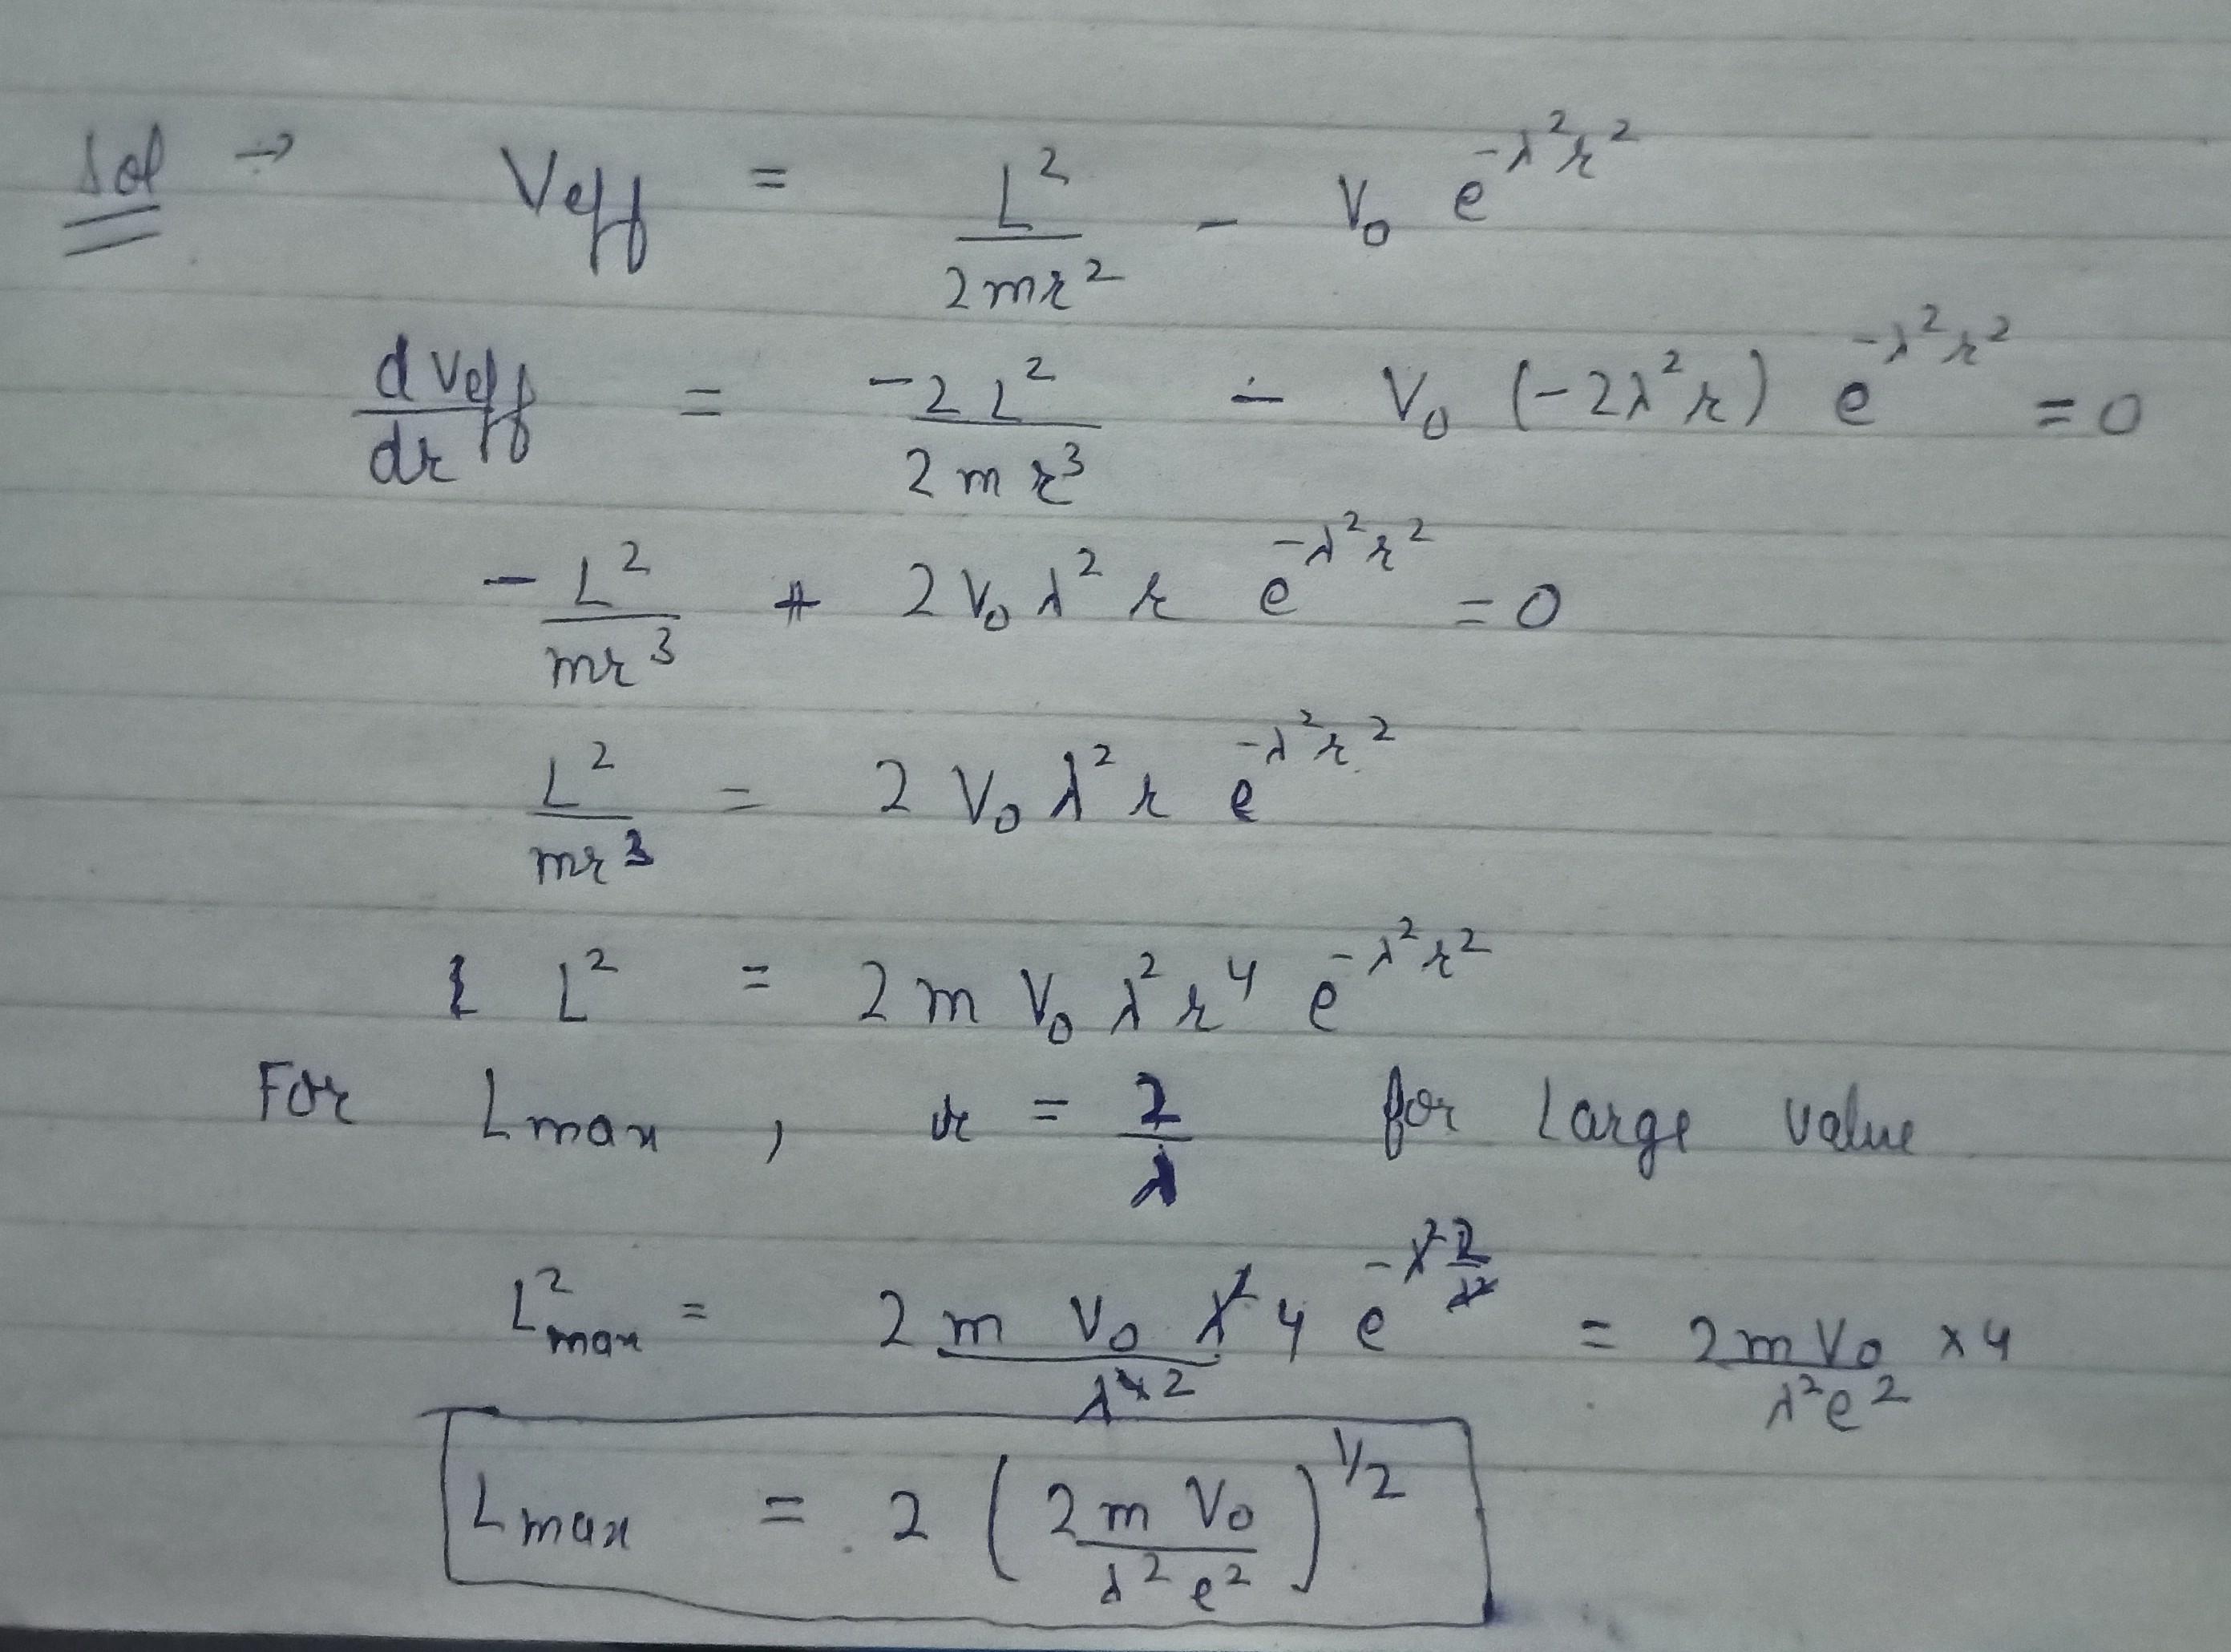 Sol → Veff = L²/2mr² - V₀ e^(-λ²r²)
dVeff/dr = -2L²/2mr³ - V₀ (-2λ²r) e^(-λ²r²) = 0
-L²/mr³ + 2V₀λ²r e^(-λ²r²) = 0
L²/mr³ = 2V₀λ²r e^(-λ²r²)
L² = 2mV₀λ²r⁴ e^(-λ²r²)
For Lmax, r = 2/λ for Large value
L²max = 2mV₀λ²4/λ⁴² e^(-λ²2/λ²) = 2mV₀/λ²e² x4
Lmax = 2 (2mV₀/λ²e²)^1/2